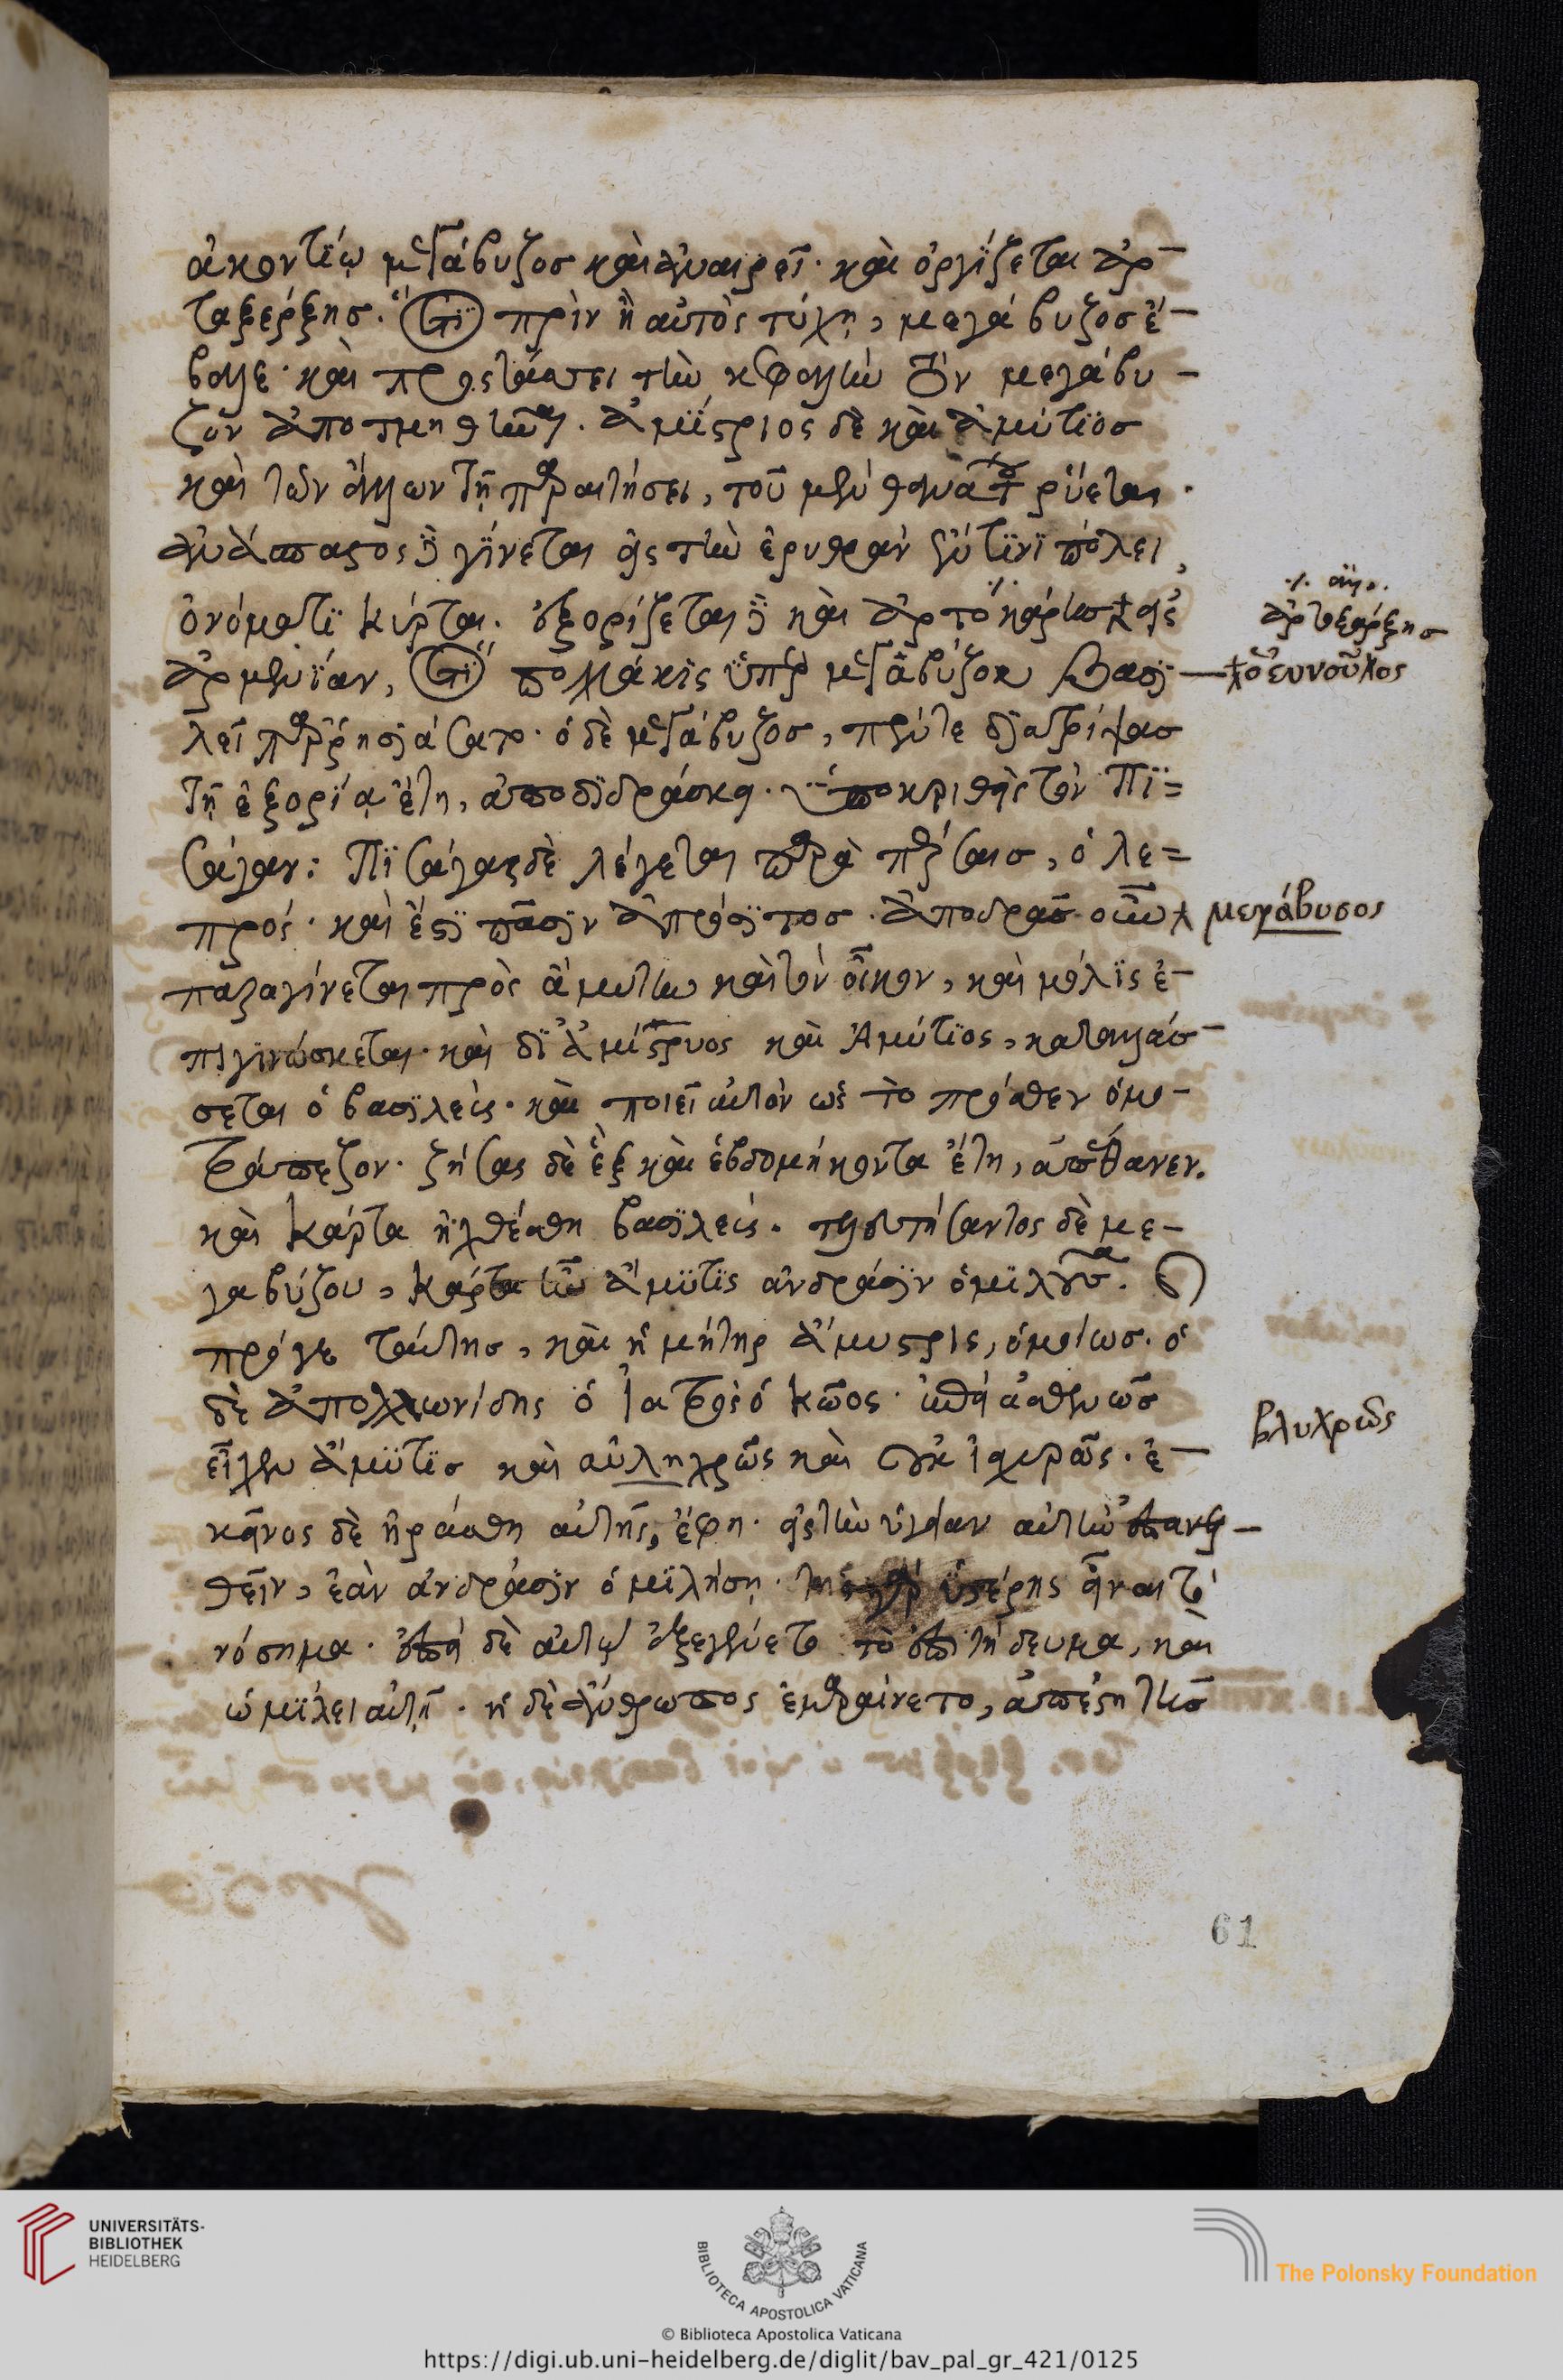 ἀκοντίῳ μεγάβυζος καὶ ἀναιρεῖ· καὶ ὀργίζεται ἀρ-
ταξέρξης. ὅτι πρὶν ἢ αὐτὸς τύχῃ, μεγάβυζος ἔ-
βαλε· καὶ προστάσσει τὴν κεφαλὴν τὸν μεγάβυ-
ζον ἀποτμηθῆναι. ἀμίστριος δὲ καὶ ἀμύτιος
καὶ τῶν ἄλλων τῇ παραιτήσει, τοῦ μὲν θανάτου ῥύεται·
ἀνάσπαστος δὲ γίνεται εἰς τὴν ἐρυθρὰν ἔν τινι πόλει,
ὀνόματι κύρται. ἐξορίζεται δὲ καὶ ἀρτοξάρης εἰς
ἀρμενίαν, ὅτι πολλάκις ὑπὲρ μεγαβύζου βασι-
λεῖ παρρησιάσατο· ὁ δὲ μεγάβυζος, πέντε διατρίψας
τῇ ἐξορίᾳ ἔτη, ἀποδιδράσκει. ὑποκριθεὶς τὸν πι=
σάγαν: πισάγας δὲ λέγεται παρὰ πέρσαις, ὁ λε=
πρός· καὶ ἔστι πᾶσιν ἀπρόσιτος. ἀποδρὰς οὖν
παραγίνεται πρὸς ἄμυτιν καὶ τὸν οἶκον, καὶ μόλις ἐ-
πιγινώσκεται· καὶ δι' ἀμίστρυος καὶ ἀμύτιος, καταλλάσ-
σεται ὁ βασιλεύς· καὶ ποιεῖ αὐτὸν ὡς τὸ πρόσθεν ὁμο-
τράπεζον. ζήσας δὲ ἓξ καὶ ἑβδομήκοντα ἔτη, ἀπέθανεν.
καὶ κάρτα ἠχθέσθη βασιλεύς. τελευτήσαντος δὲ με-
γαβύζου, κάρτα ἦν ἄμυτις ἀνδράσιν ὁμιλοῦσα.
πρό γε ταύτης, καὶ ἡ μήτηρ ἄμυστρις, ὁμοίως. ὁ
δὲ ἀπολλωνίδης ὁ ἰατρὸς ὁ κῶος· ἐπεὶ ἀσθενῶς
εἶχεν ἄμυτις καὶ αὐληχρῶς καὶ οὐκ ἰσχυρῶς. ἐ-
κεῖνος δὲ ἠράσθη αὐτῆς, ἔφη· εἰς τὴν ὑγείαν αὐτὴν ἐπανελ-
θεῖν, ἐὰν ἀνδράσιν ὁμιλήσῃ· τῆς γὰρ ὑστέρης εἶναι τὸ
νόσημα. ἐπεὶ δὲ αὐτῷ ἐξεγένετο τὸ ἐπιτήδευμα, καὶ
ὡμίλει αὐτῇ. ἡ δὲ ἄνθρωπος ἐμαραίνετο, ἀπέστη τῆς
ἀρτοξάρξης
ὁ εὐνοῦχος
μεγάβυσος
βλυχρῶς
61
UNIVERSITÄTS-
BIBLIOTHEK
HEIDELBERG
BIBLIOTECA APOSTOLICA VATICANA
The Polonsky Foundation
© Biblioteca Apostolica Vaticana
https://digi.ub.uni-heidelberg.de/diglit/bav_pal_gr_421/0125